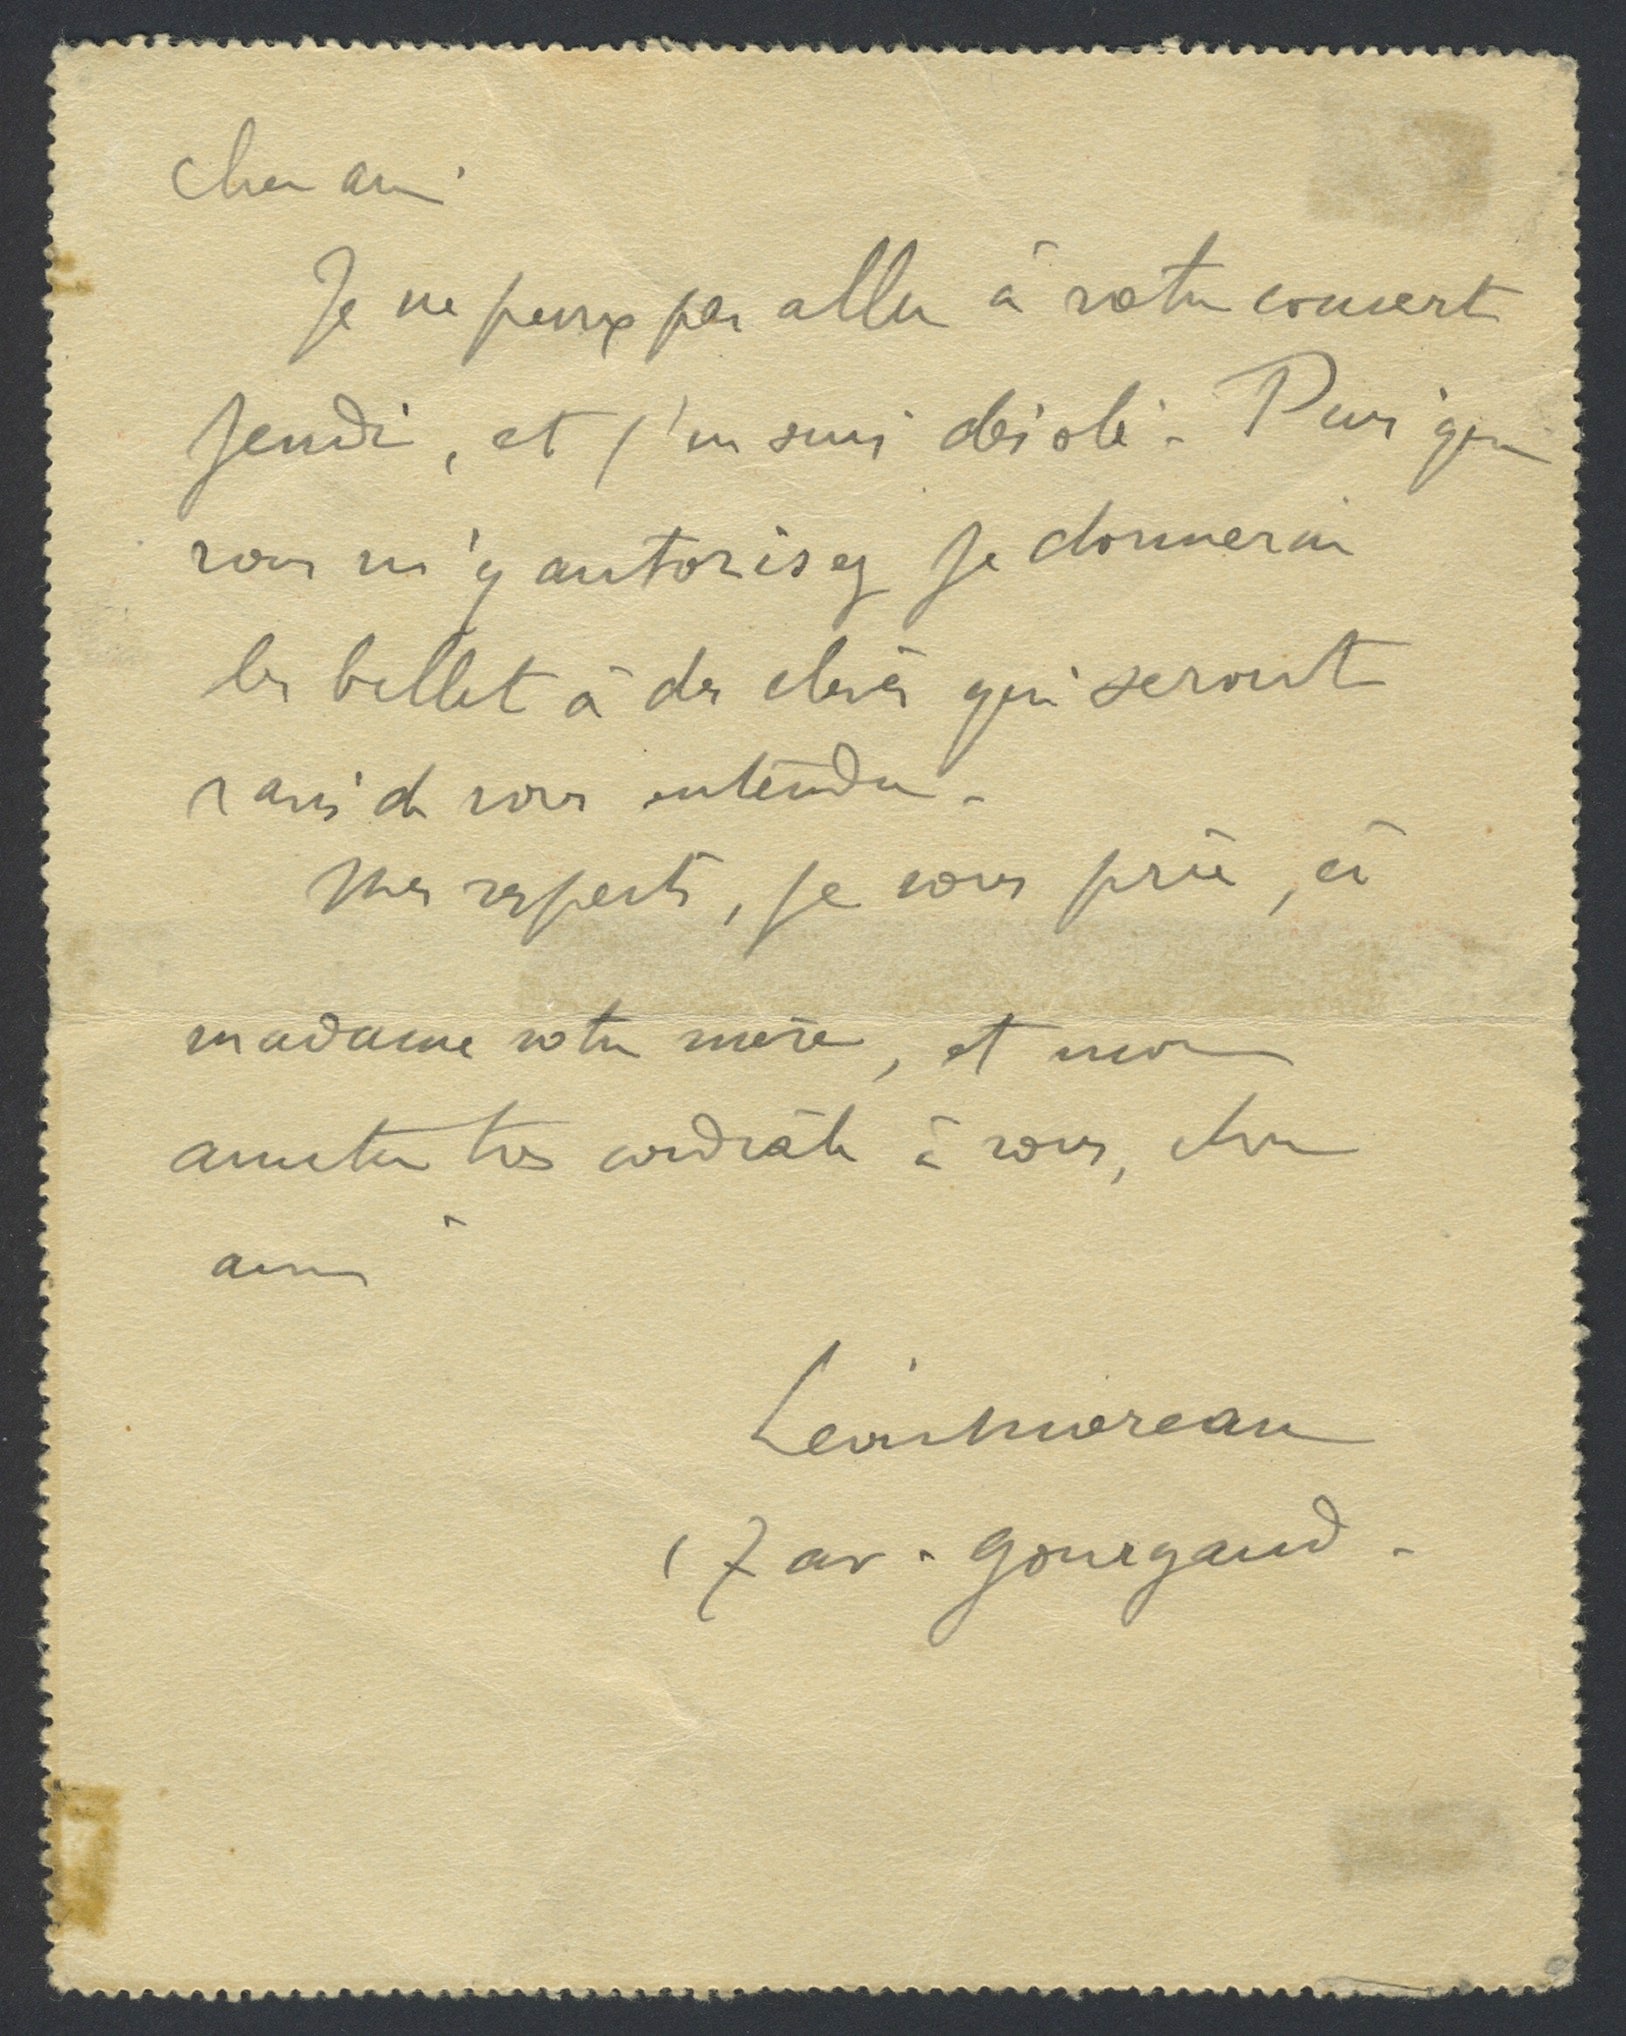 cher ami
Je ne peux pas aller à votre concert
jeudi, et j'en suis désolé. Puisque
vous m'y autorisez je donnerai
les billets à des élèves qui seront
ravis de vous entendre.
Mes respects, je vous prie, à
madame votre mère, et mon
amitié très cordiale à vous, cher
ami
Léon Moreau
17 av. Gourgaud.